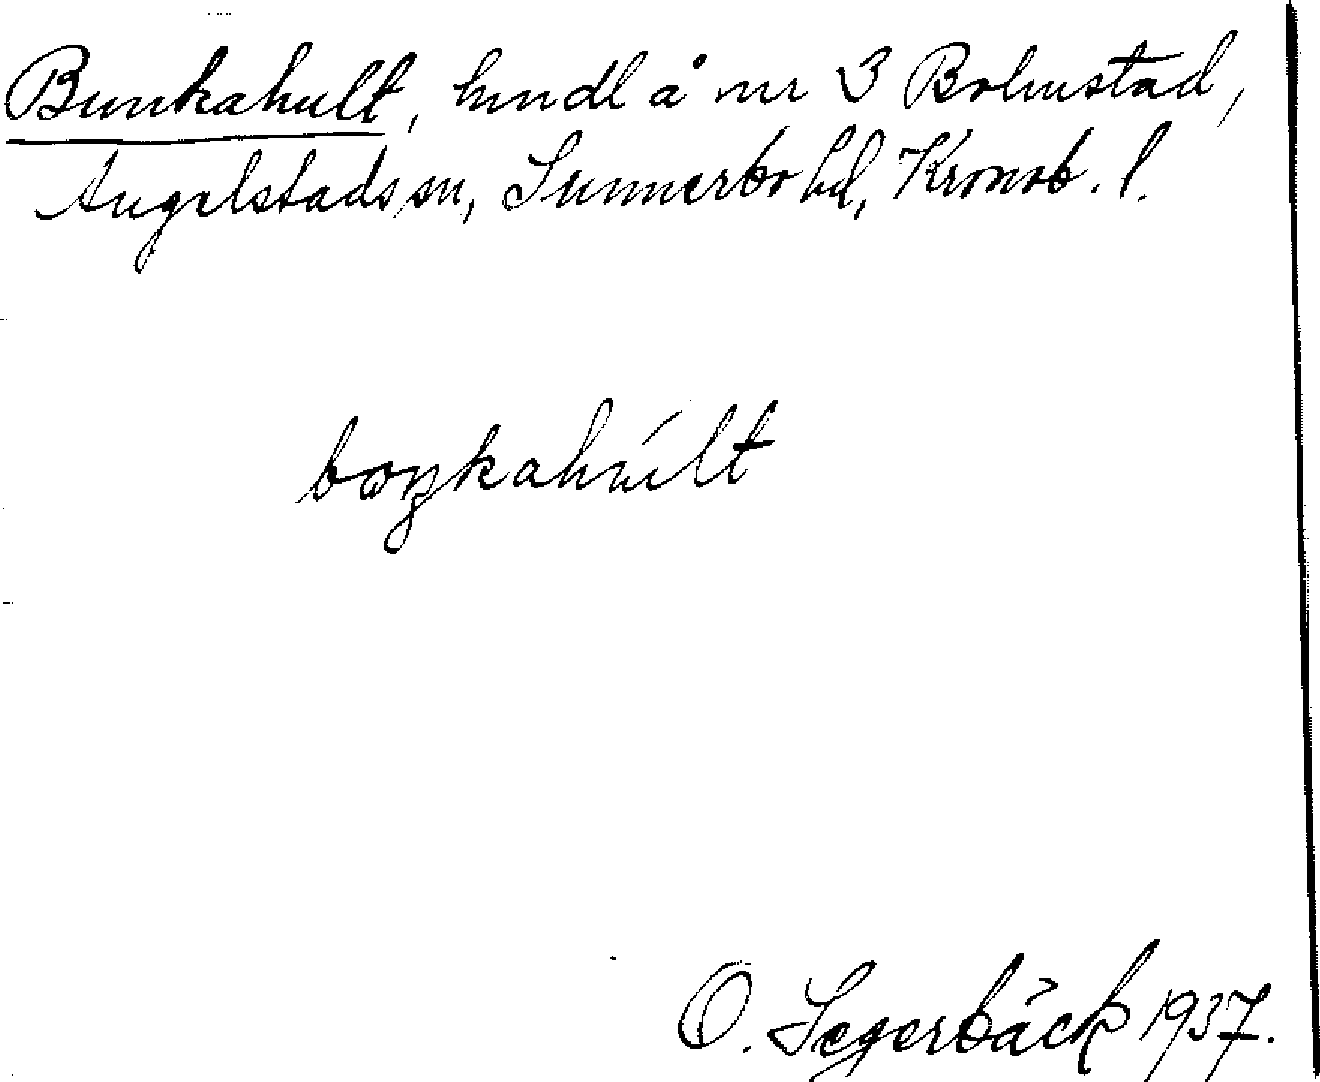 Bunkahult, hmdl å nr 3 Bolmstad,
Angelstads sn, Sunnerbo hd, Kronob. l.
boŋkahúlt
O. Segerbäck 1937.